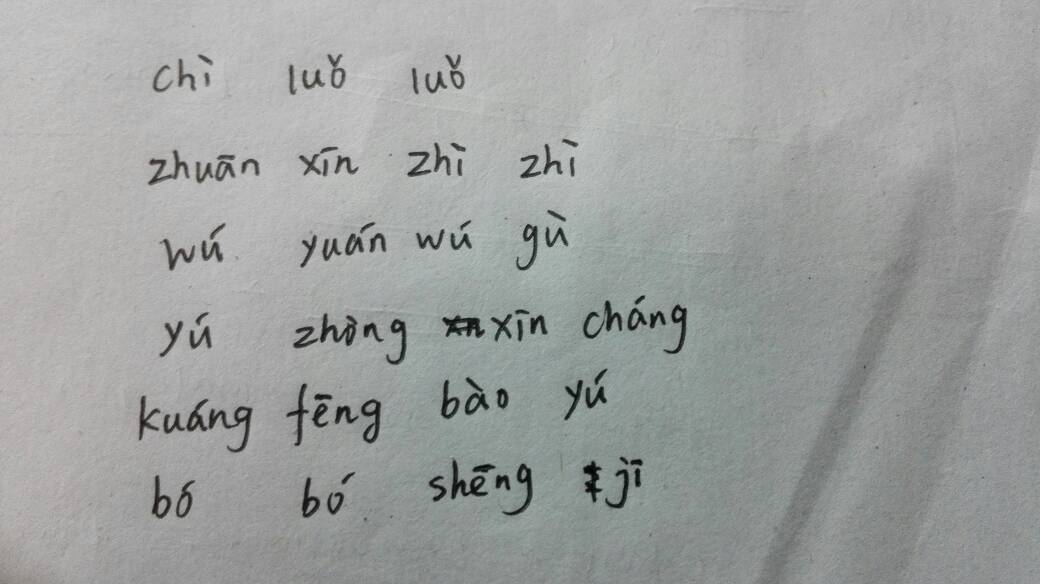 chì luǒ luǒ
zhuān xīn zhì zhì
wú yuán wú gù
yú zhòng xīn cháng
kuáng fēng bào yú
bó bó shēng jī